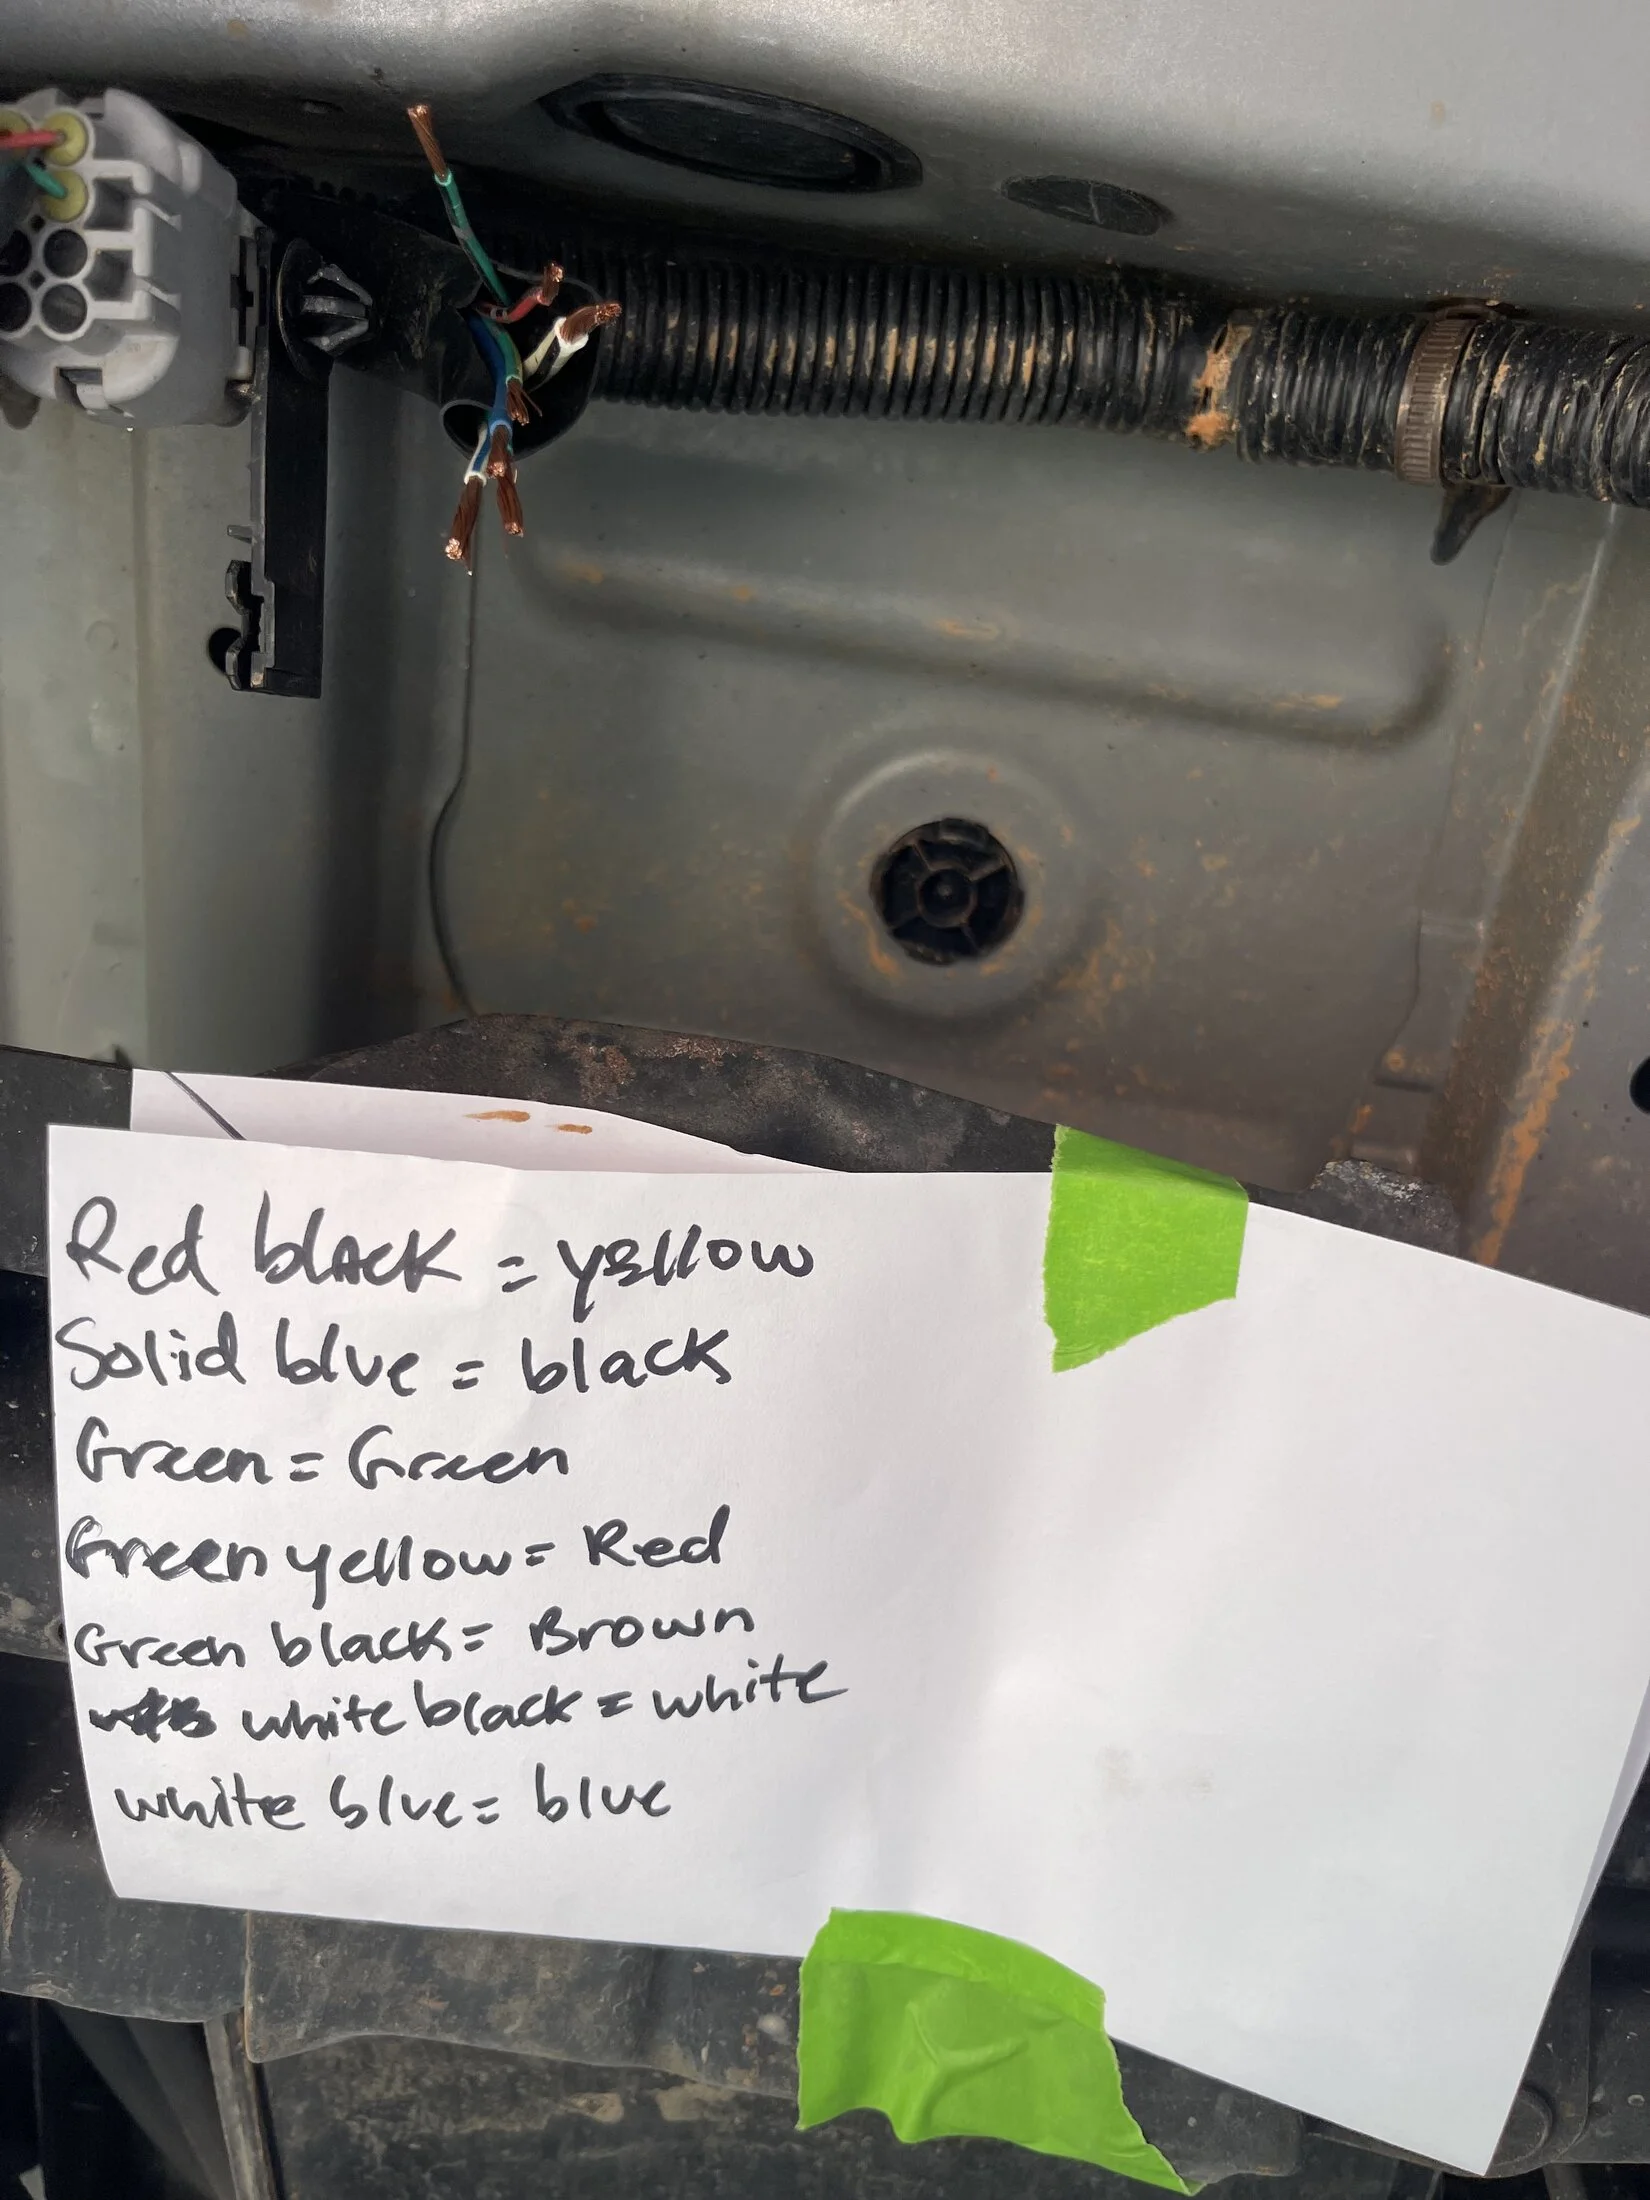 Red black = yellow
Solid blue = black
Green = Green
Green yellow = Red
Green black = Brown
white black = white
white blue = blue